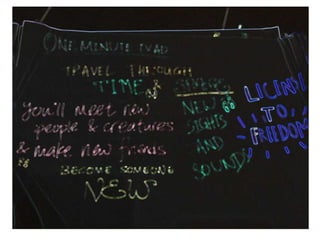 ONE MINUTE TV AD
TRAVEL THROUGH
TIME &
You'll meet new
people & creatures
& make new friends
BECOME SOMEONE
NEW
NEW
SIGHTS
AND
SOUNDS
LICENSE
TO
FREEDOM